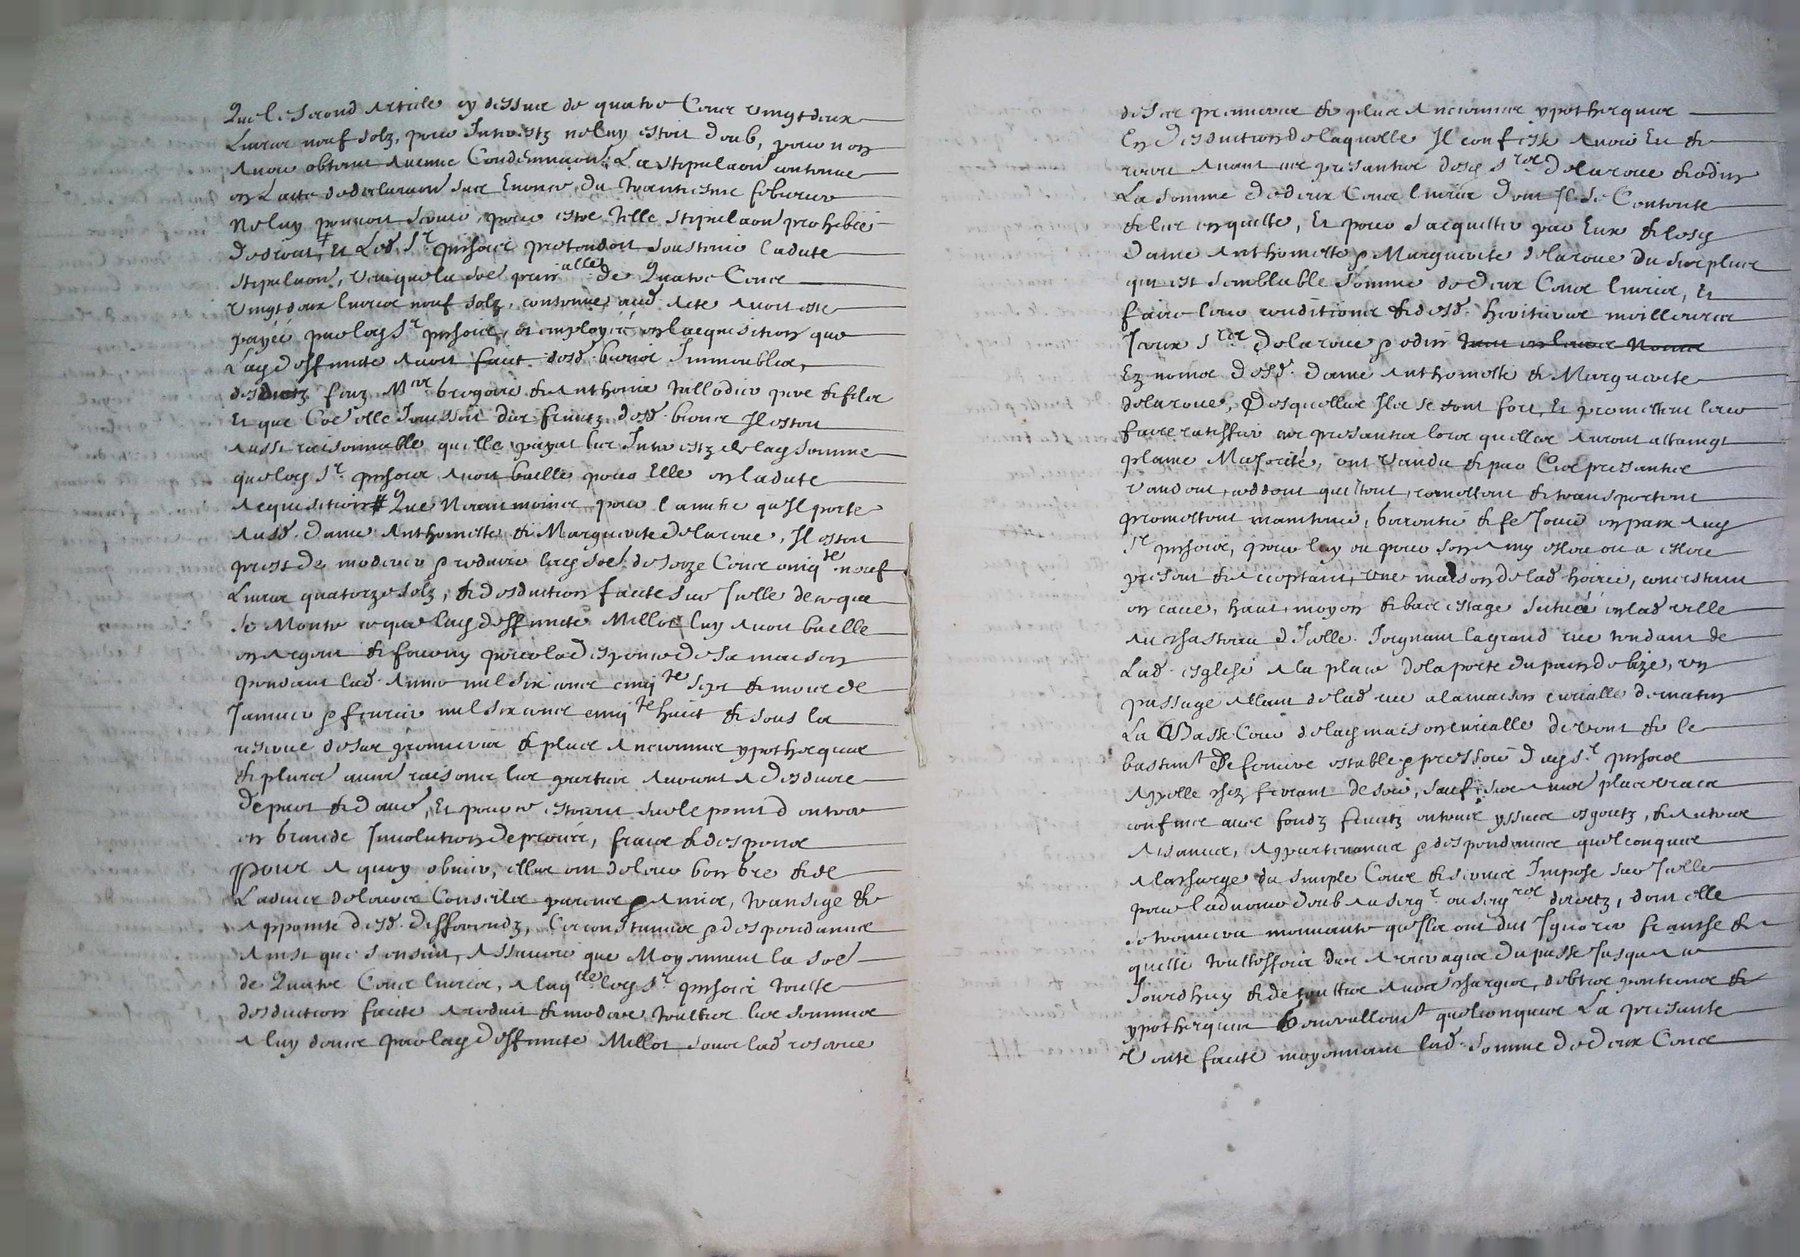 Que le second article cy dessus de quatre Cens vingt deux
Livres neuf solz, pour Interestz ne luy estoit doub, pour non
avoir obtenu aucune Condemnaon. La stipulaon contenue
en Lacte dedeclaraon sus Enoncé, du trentiesme febvrier
ne luy pouvoit servir, pour estre telle stipulaon prohibée
de droict, Et Led. Sr. pretendoit soustenir ladite
stipulaon, de Quatre Cens
vingt deux livres neuf solz, contenue aud. acte avoit esté
payée par led. Sr. et employée en lacquisition que
Lad. deffuncte avoit faict desd. biens Immeubles,
desdictz feuz Mres. gregoire & Anthoine pere & filz
Et que Coe elle Jouissoit des fruictz desd. biens Il estoit
aussi raisonnable quelle payat les Interestz de lad. somme
que led. Sr. avoit baillé pour Elle en ladite
acquisition # Que neanmoings pour lamitié qu'Il porte
ausd. dames Anthoinette & Marguerite delaroue, Il estoit
prest de moderer & reduire lad. soe. de seize Cens cinqte. neuf
Livres quatorze solz, & desduction faicte sur Icelle de ce que
se Monte ce que lad. deffuncte Millot luy avoit baillé
en argent & fourny pour la despence de sa maison
pendant lad. année mil six cens cinqte. sept & mois de
Janvier & febvrier mil six cens cinqte. huict & sous la
reserve de ses premieres & plus anciennes ypothecques
& plusrs. autres raisons les parties avoient a desduire
de part & daue, Et pource estoient sur le point dentrer
en grande Involution de procès, fraiz & despens
Pour a quoy obvier, elles ont de leur bon gré & de
Ladvis de leurs Conseilz parens & amis, transigé &
appointé desd. differendz, Circonstances & despendances
ainsi que sensuit, assavoir que Moyennant la soe.
de Quatre Cens livres, a laqlle. led. Sr. toutte
desduction faicte a reduit & moderé touttes les sommes
a luy deues par lad. deffuncte Millot soubz lad. reserve
de ses premieres & plus anciennes ypothecques
En desduction de laquelle Il confesse avoir Eu &
receu avant ces presentes desd. Srs. delaroue &
La somme de deux Cens livres dont Il se Contente
& les en quitte, Et pour sacquitter par Eux & lesd.
dames Anthoinette & Marguerite delaroue du surplus
qui est semblable somme de deux Cens livres, Et
faire leurs conditions & desd. heritieres meilleures
Iceux Srs. delaroue &
Ez noms desd. dames Anthoinette & Marguerite
delaroue, Desquelles Ils se font fort, Et promettent leur
faire ratiffier ces presentes lors quelles auront attaingt
plaine Majorité, ont vendu & par Ces presentes
vendent, ceddent quittent, remettent & transportent
promettent maintenir, garentir & fe Jouir en paix aud.
Sr. pour luy ou pour son amy esleu ou a eslire
present & acceptant, une maison de lad. hoirie, concistant
en cave, hault moyen & bas estage scituée en lad. ville
au chasteau dIcelle. Joignant la grand rue tendant de
Lad. esglise a la place de la porte du de bize, un
passage allant de lad. rue a la maison curialle de matin
La Basse Cour de lad. maison curialle de vent & le
bastimt. De estable & pressoir dud. Sr.
appellé chez de soir, sauf ses aues plus vrays
confins avec fondz fruictz entrées yssues esgoutz, & autres
aisances, appartenances & despendances quelconques
a la charge du simple Cens & service Imposé sur Icelle
pour ladvenir doub au seigr. ou seigrs. directz, dont elle
se trouvera mouvante qu'Ilz ont dit Ignorer franche &
quitte touttesfois des arrerages du passé Jusques a
Jourdhuy & de touttes aues charges, debtes pentions &
ypothecques Generallemt. quelconques La presente
Vente faicte moyennant lad. somme de deux Cens